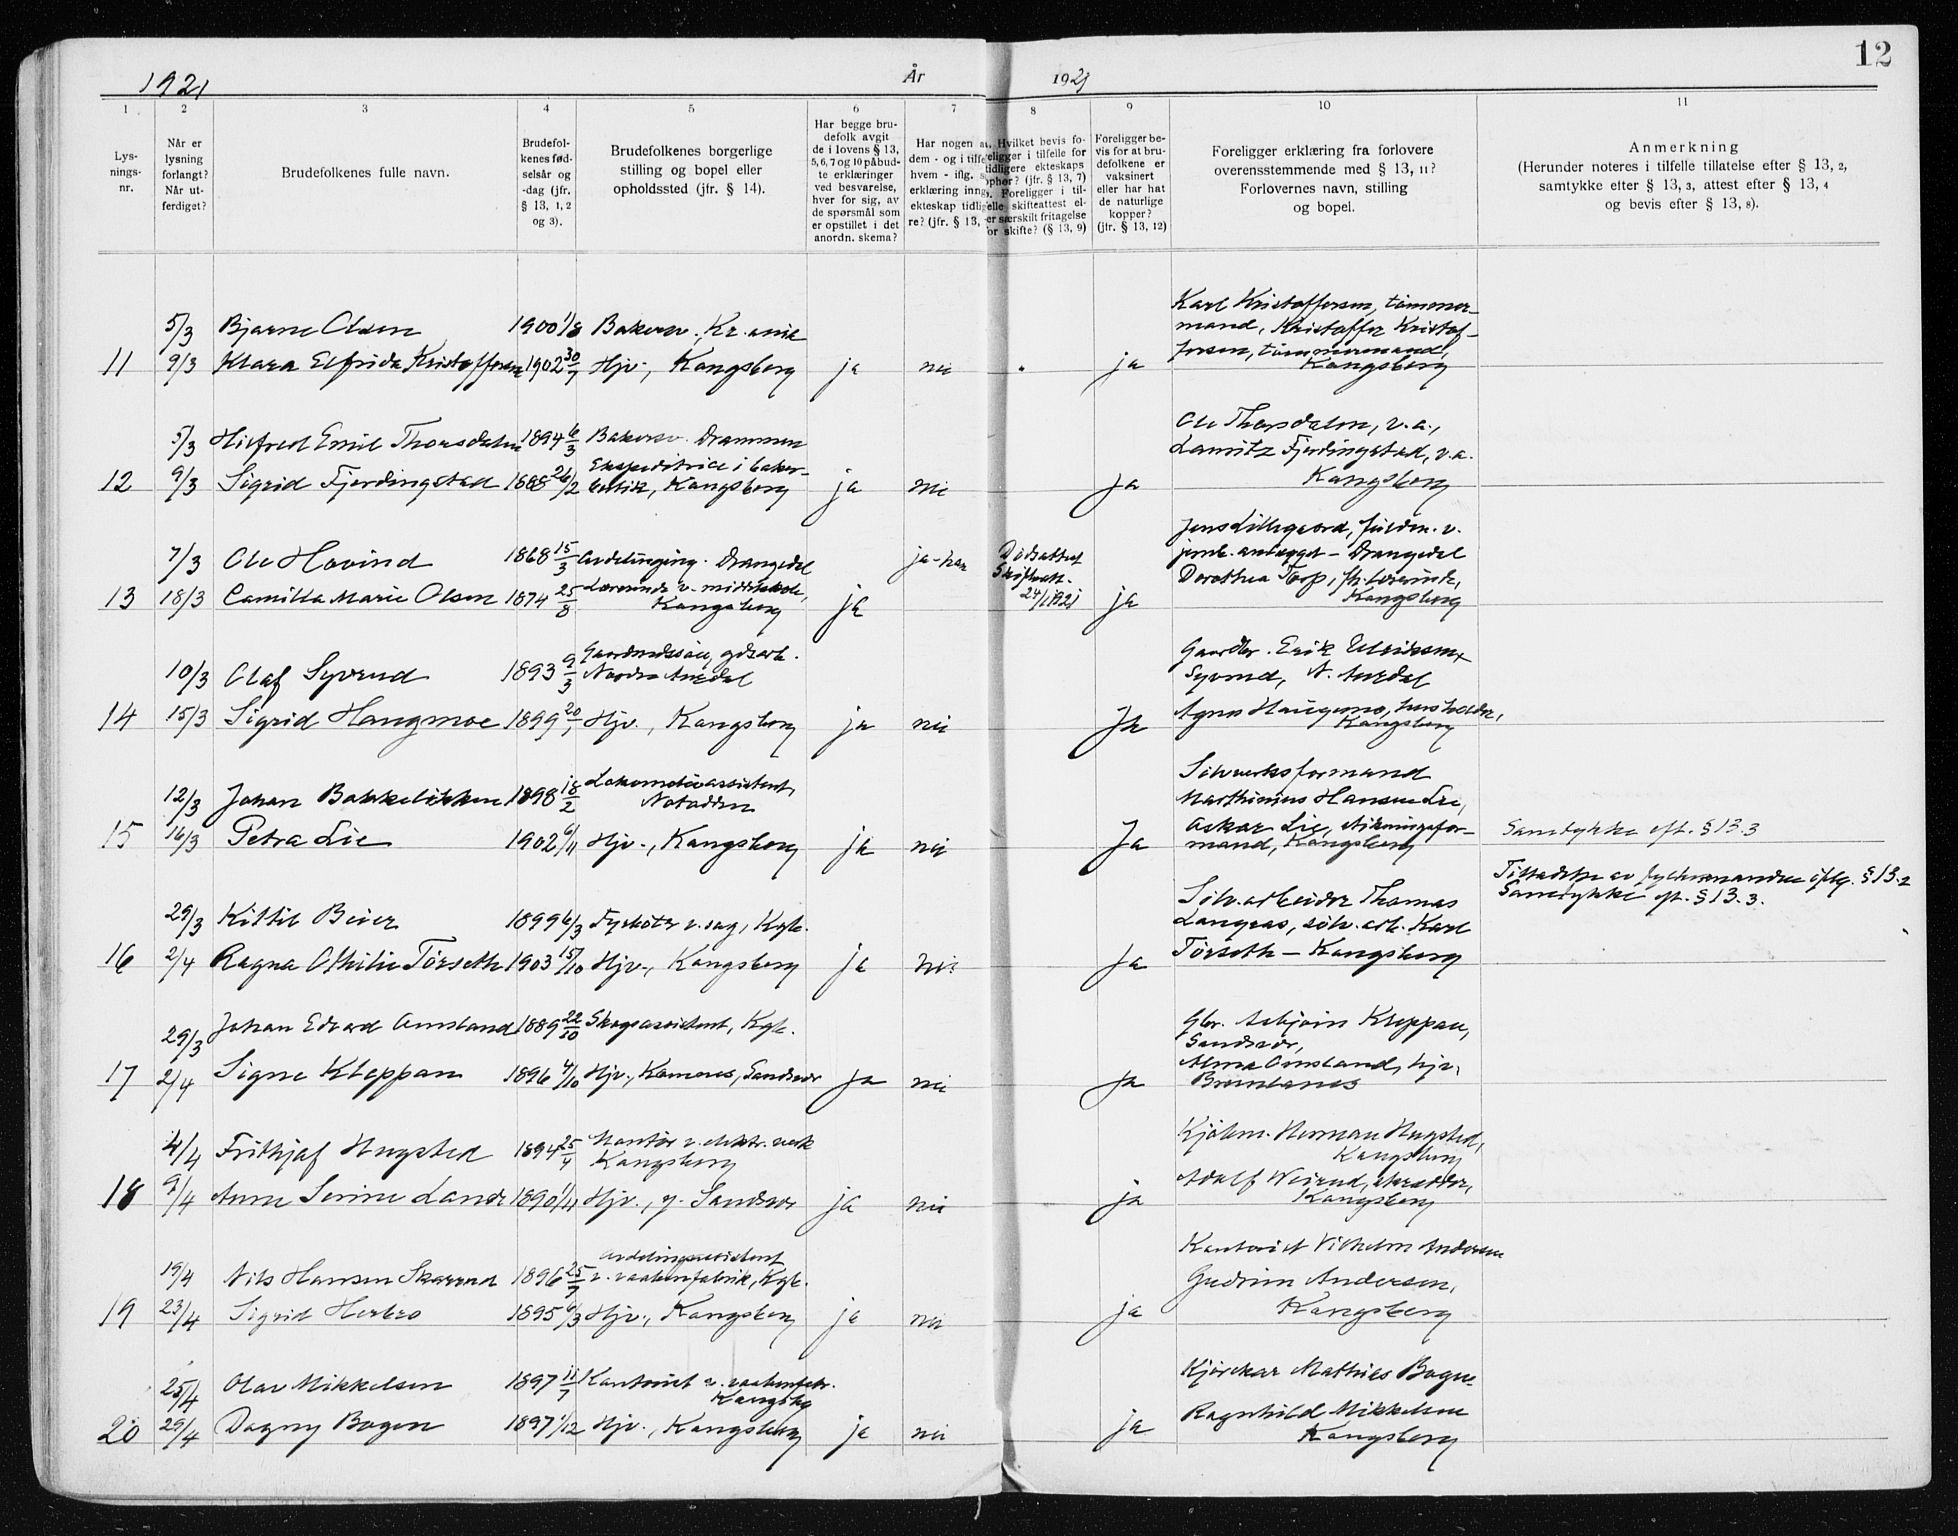 12
1921 År 1921
1 2 3 4 5 6 7 8 9 10 11
Lys-
nings-
nr.
Når er
lysning
forlangt?
Når ut-
ferdiget?
Brudefolkenes fulle navn.
Brudefol-
kenes fød-
selsår og
-dag (jfr.
§ 13, 1, 2
og 3).
Brudefolkenes borgerlige
stilling og bopel eller
opholdssted (jfr. § 14).
Har begge bru-
defolk avgit
de i lovens § 13,
5, 6, 7 og 10 påbud-
te erklæringer
ved besvarelse,
hver for sig, av
de spørsmål som
er opstillet i det
anordn. skema?
Har nogen a
dem - og i tilfe
hvem - iflg. s
erklæring inng
ekteskap tidlig
re? (jfr. § 13,
Hvilket bevis fo-
religger i tilfelle for
tidligere ekteskaps
ophør? (jfr. § 13, 7)
Foreligger i til-
felle skifteattest el-
er særskilt fritagelse
for skifte? (§ 13, 9)
Foreligger be-
vis for at bru-
defolkene er
vaksinert
eller har hat
de naturlige
kopper?
(jfr. § 13, 12)
Foreligger erklæring fra forlovere
overensstemmende med § 13, 11?
Forlovernes navn, stilling
og bopel.
Anmerkning
(Herunder noteres i tilfelle tillatelse efter § 13, 2,
samtykke efter § 13, 3, attest efter § 13, 4
og bevis efter § 13, 8).
5/3 Bjarne Olsen 1900 1/8 Bakersv., Kr.ania
11 9/3 Klara Elfrida Kristoffersen 1902 30/7 Hjv., Kongsberg ja nei ja
Karl Kristoffersen, tømmer-
mand, Kristoffer Kristof-
fersen, tømmermand,
Kongsberg
5/3 Hilfred Emil Thorsdalen 1894 6/3 Bakersv. Drammen
12 9/3 Sigrid Fjerdingstad 1888 26/2 Ekspeditrice i baker-
butik, Kongsberg ja nei ja
Ole Thorsdalen, v.a.,
Lauritz Fjerdingstad, v.a.
Kongsberg
7/3 Ole Hovind 1868 15/3 Avdelingsing. Drangedal ja - han
13 18/3 Camilla Marie Olsen 1874 25/8 Lærerinde v. middelskole,
Kongsberg ja
Dødsattest
Skifteatt.
24/1 1921 ja
Jens Lillegaard, fuldm. v.
jernb. anlægget - Drangedal
Dorothea Torp, fh. lærerinde,
Kongsberg
10/3 Olaf Syverud 1893 9/3 Gaardmandssøn, gdsarb.
Nordre Aurdal
14 15/3 Sigrid Haugmoe 1899 20/1 Hjv., Kongsberg ja nei Ja
Gaardbr. Erik Eriksen
Syverud, N. Aurdal
Agnes Haugmo, husholder,
Kongsberg
12/3 Johan Bakkelikken 1898 18/2 Lokomotivassistent,
Notodden
15 16/3 Petra Lie 1902 6/11 Hjv., Kongsberg ja nei Ja
Sølvverksformand
Marthinius Hansen Lie,
Oskar Lie, stikningsfor-
mand, Kongsberg
Samtykke eft. § 13.3
29/3 Kittil Beier 1899 6/3 Fyrbøter v. sag, Kgb.
16 2/4 Ragna Othilie Tørseth 1903 15/10 Hjv., Kongsberg ja nei Ja
Sølv.arbeider Thomas
Langaas, sølv. arb. Karl
Tørseth - Kongsberg
Tilladelse av fylkesmanden iflg. § 13.2
Samtykke eft. § 13.3.
29/3 Johan Edvard Omsland 1889 22/10 Skogassistent, Kgb.
17 2/4 Signe Kleppan 1896 4/10 Hjv., Komnes, Sandsvær ja nei ja
Gbr. Asbjørn Kleppan,
Sandsvær,
Alma Omsland, hjv.
Brunlanes
4/4 Frithjof Hugsted 1894 25/4 Montør v. elektr. verk
Kongsberg
18 9/4 Anne Serine Lande 1890 1/11 Hjv., y. Sandsvær ja nei ja
Kjøbm. Herman Hugsted,
Kongsberg
Adolf Weirud, skrædder,
Kongsberg
19/4 Nils Hansen Skarrud 1896 25/7 Avdelingsassistent
v. vaabenfabrik, Kgb.
19 23/4 Sigrid Herbro 1895 6/3 Hjv., Kongsberg ja nei ja
Kontorist Vilhelm Andersen
Gudrun Andersen,
Kongsberg
25/4 Olav Mikkelsen 1897 11/7 Kontorist v. vaabenfabr.
Kongsbg
20 29/4 Dagny Bogen 1897 1/12 Hjv., Kongsberg ja nei ja
Kjørekar Mathias Bogen
Ragnhild Mikkelsen
Kongsberg